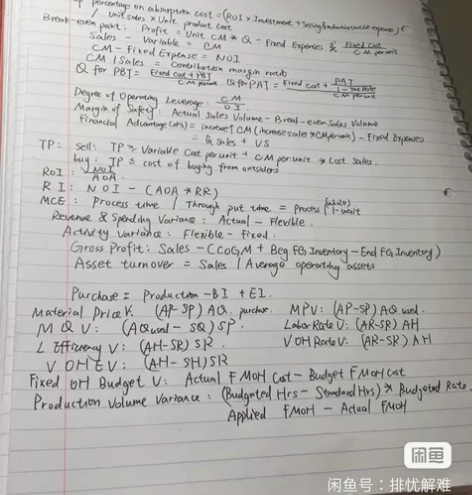 percentage on absorption cost = (ROI × Investment + Selling & administrative expenses) /
unit sales × Unit product cost
Break-even point: Profit = Unit CM * Q - Fixed Expenses & Fixed Cost / CM per unit
Sales - Variable = CM
CM - Fixed Expense = NOI
CM / Sales = Contribution margin ratio
Q for PBT = Fixed Cost + PBT / CM per unit Q for PAT = Fixed Cost + PAT / 1 - Tax Rate / CM per unit
Degree of Operating Leverage: CM / OI
Margin of Safety: Actual Sales Volume - Break-even Sales Volume
Financial Advantage (adv) = increase CM (increase sales * CM per unit) - Fixed Expenses
= Sales + VS
TP: sell: TP ≥ Variable Cost per unit + CM per unit * Lost Sales.
buy: TP ≤ cost of buying from outsiders
ROI: NOI / AOA
RI: NOI - (AOA * RR)
MCE: Process time / Through put time = Process / 1-unit
Revenue & Spending Variance: Actual - Flexible.
Activity Variance: Flexible - Fixed.
Gross Profit: Sales - (COGM + Beg FG Inventory - End FG Inventory)
Asset turnover = Sales / Average operating assets
Purchase = Production - BI + EI.
Material Price V: (AP-SP) AQ purchase. MPV: (AP-SP) AQ used.
MQV: (AQ used - SQ) SP. Labor Rate V: (AR-SR) AH
L Efficiency V: (AH-SR) SR. VOH Rate V: (AR-SR) AH
VOHEV: (AH-SH) SR
Fixed OH Budget V: Actual FMOH Cost - Budget FMOH Cost
Production Volume Variance: (Budgeted Hrs - Standard Hrs) * Budgeted Rate.
Applied FMOH - Actual FMOH
闲鱼
闲鱼号：排忧解难